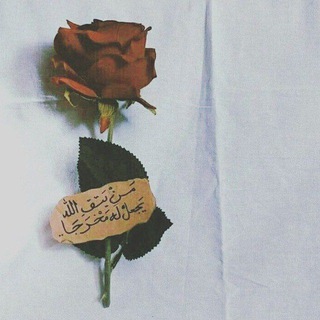 مَنْ يَتَّقِ اللّٰه
يَجعل له مَخْرَجَا